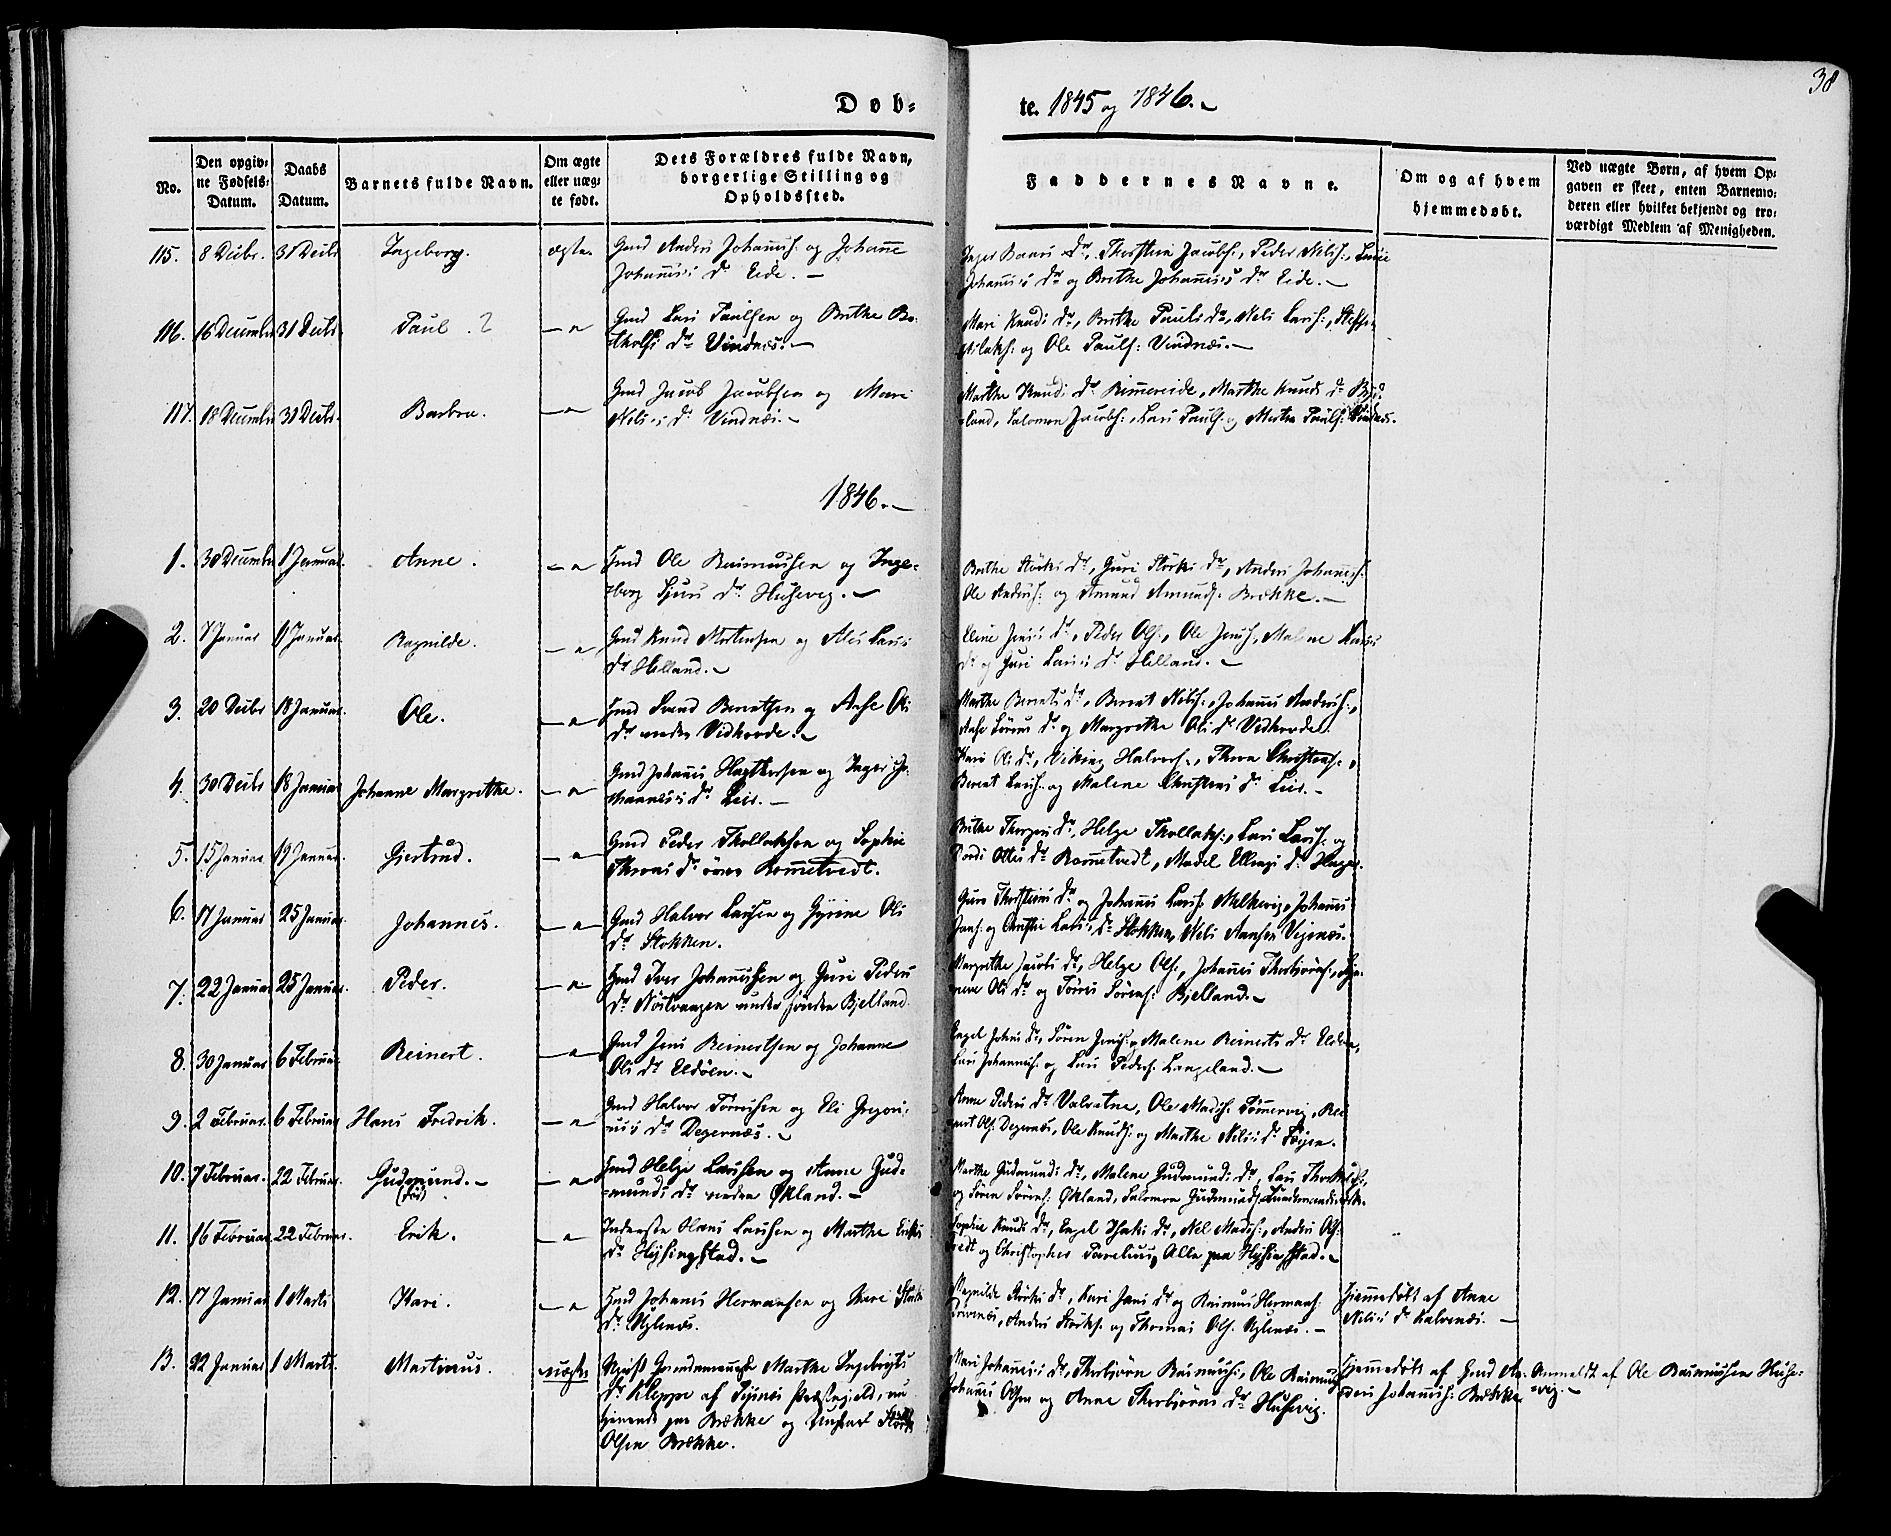 38
Døb-
te. 1845 og 1846.
No.
Den opgiv-
ne Fødsels-
Datum.
Daabs
Datum.
Barnets fulde Navn.
Om ægte
eller uæg-
te født.
Dets Forældres fulde Navn,
borgerlige Stilling og
Opholdssted.
Faddernes Navne.
Om og af hvem
hjemmedøbt.
Ved uægte Børn, af hvem Op-
gaven er skeet, enten Barnemo-
deren eller hvilket bekjendt og tro-
værdigt Medlem af Menigheden.
115. 8 Decbr. 31 Decbr Ingeborg. ægte. Gmd Anders Johannes: og Johanne
Johannes Dr Eide. —
Dr, Thorstein Jacobs:, Peder Nels:,
Johannes Dr og Brithe Johannes Dr Eide. —
116. 16 Decembr 31 Decbr Paul. Gmd Lars Paulsen og Brithe
Dr Vindnæs. —
Mari Knuds Dr, Brithe Pauls Dr, Nels Lars:,
og Ole Pauls: Vindnæs. —
117. 18 Decembr 31 Decbr. Barbra. Gmd Jacob Jacobsen og Mari
Nels Dr Vindnæs. —
Marthe Knuds Dr Rimmereide, Marthe Knuds Dr
land, Salomon Jacobs:, Lars Pauls: og Marthe Pauls: Vindnæs.
1846. —
1. 30 Decembr 1 Januar. Anne. Hmd Ole Rasmussen og Inge-
borg Sjurs Dr Husevig. —
Brithe Størks Dr, Guri Størks Dr, Anders Johannes:
Ole Anders: og Amund Amunds: Brække. —
2. 7 Januar 11 Januar. Ragnilde. Gmd Knud Mortensen og Ales Lars
Dr Helland. —
Eline Jens Dr, Peder Ols:, Ole Jens:, Malene Lars
Dr og Guri Lars Dr Helland. —
3. 20 Decbr 18 Januar. Ole. Hmd Svend Berentsen og Aase Ols
Dr under Vidhovde. —
Marthe Berents Dr, Berent Nels:, Johannes Anders:,
Aase Sørens Dr og Margrethe Ols Dr Vidhovde.
4. 30 Decbr 18 Januar Johanne Margrethe. Gmd Johannes Hagthorsen og Inger Jo-
hannes Dr Leir. —
Kari Ols Dr, Viking Halvors:, Thora Christens:,
Berent Lars: og Malene Christens Dr Leir. —
5. 15 Januar 19 Januar. Gjertrud. Gmd Peder Thollaksen og Sophie
Dr Rommetvedt.
Brithe Dr, Helge Thollaks:, Lars Lars: og
Dr Rommetvedt, Madel Ellings Dr
6. 17 Januar 25 Januar. Johannes. Gmd Halvor Larsen og Gjørine Ols
Dr Stokken.
Guro Thorsteins Dr og Johannes Lars: Melkevig, Johannes
Jans: og Lars Dr Stokken, Nels Aansen Vejenæs.
7. 22 Januar 25 Januar. Peder. Hmd Iver Johannessen og Guri Peders
Dr under søndre Bjelland.
Margrethe Jacobs Dr, Helge Ols:, Johannes Thorbjørns:,
Ols Dr og Tørres Sørens: Bjelland. —
8. 30 Januar 6 Februar Reinert. Gmd Jens Reinertsen og Johanne
Ols Dr Eldøen. —
Engel Johns Dr, Søren Jens: og Malene Reinerts Dr Eldøen,
Lars Johannes: og Lars Peders: Langeland. —
9. 2 Februar. 6 Februar Hans Fredrik. Gmd Halvor Tørresen og Eli Gregori-
us Dr Degernæs. —
Anne Peders Dr Valvatne, Ole Mads: Sømmervig,
Ols: Degernæs, Ole Knuds: og Marthe Nels Dr Føyen.
10. 7 Februar. 22 Februar. Gudmund. — Hmd Helge Larsen og Anne Gud-
munds Dr under Økland. —
Marthe Gudmunds Dr, Malene Gudmunds Dr, Lars
og Søren Sørens: Økland, Salomon Gudmunds:
11. 16 Februar 22 Februar. Erik. Inderste Hans Larsen og Marthe Eriks
Dr Hysingstad. —
Sophie Knuds Dr, Engel Isaks Dr, Nels Mads:, Anders Ols:
og Christopher Alle paa Hysingstad. —
12. 17 Januar 1 Marts Kari. Hmd Johannes Hermansen og Kari Størks
Dr Uglenæs.
Ragnilde Størks Dr, Kari Jans Dr og Rasmus Hermans:
Anders Størks: og Thomas Ols: Uglenæs. —
Hjemmedøbt af Anne
Nels Dr Kalvenæs. —
13. 22 Januar 1 Marts. Martinus. uægte Ugift Marthe Ingebrigts
Dr Kleppe af Tysnæs Præstegjeld, nu
tjenende paa Brække og Ungkarl Størk
Olsen Brække.
Mari Johannes Dr, Thorbjørn Rasmus:, Ole Rasmus:
Johannes Olsen og Anne Thorbjørns Dr Husevig.
Hjemmedøbt af Gmd An-
ders Johannes: Brække
Anmeldt af Ole Rasmussen Huse-
vig. —